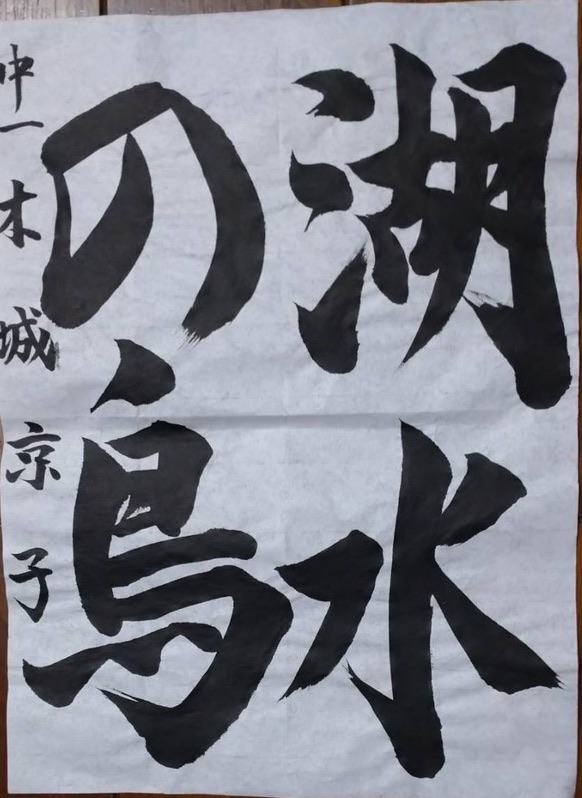 湖水
の鳥
中一 木城京子